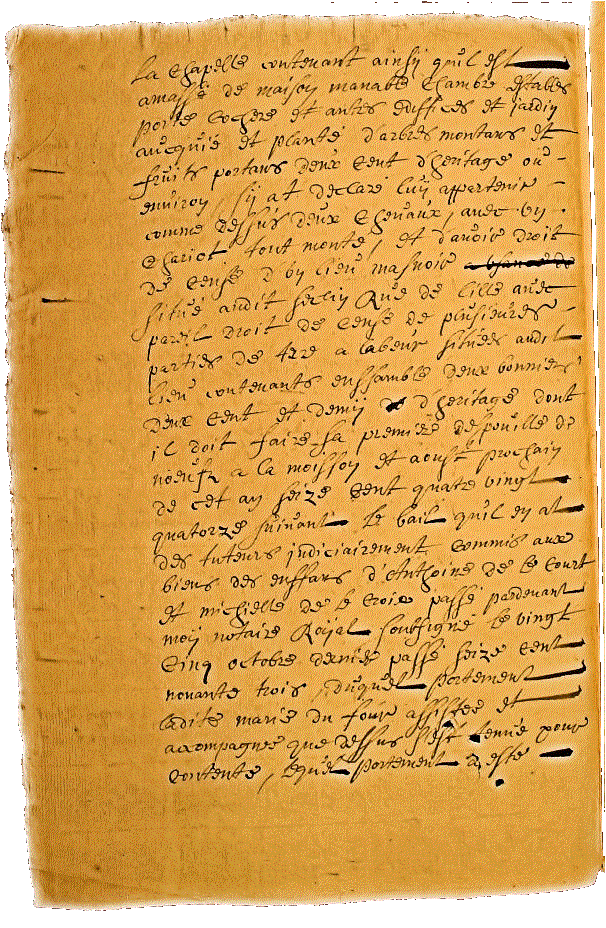 La Chapelle contenant ainsy qu'il est
amassé de maison manable Chambre estables
porte cochere et autres ediffices et jardin
avecquié et planté d'arbres montans et
fruits portans deux Cent d'heritage ou
environ, sy at declaré luy appartenir
comme dessus deux Chevaux, avec un
Chariot tout monté, et d'avoir droit
de Cense d'un lieu manoir
situé audit seclin Rue de lille avec
pareil droit de Cense de plusieures
parties de tre a labeur situées audit
lieu contenants enssamble deux bonniers
deux Cent et demij d'heritage dont
il doit faire sa premiere despouille de
noeufz a la moisson et aoust prochain
de cet an seize Cent quatre vingt
quatorze suivant le bail qu'il en at
des tuteurs judiciairement Commis aux
biens des enffans d'Anthoine de le Court
et michielle de le Croix passé pardevant
moy notaire Royal soubsigné le vingt
Cinq octobre dernier passé seize Cent
nonante trois, duquel portement
ladite marie du four assistée et
accompagnée que dessus s'est tenue pour
Contente, lequel portement a esté